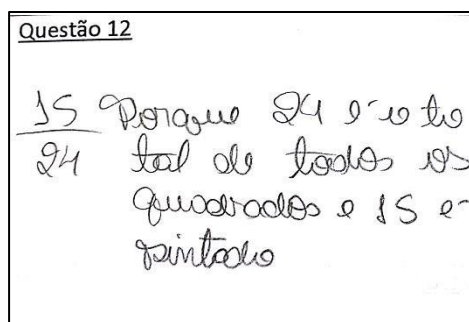 Questão 12
15/24 Porque 24 é o to
tal de todos os
quadrados e 15 é
pintado